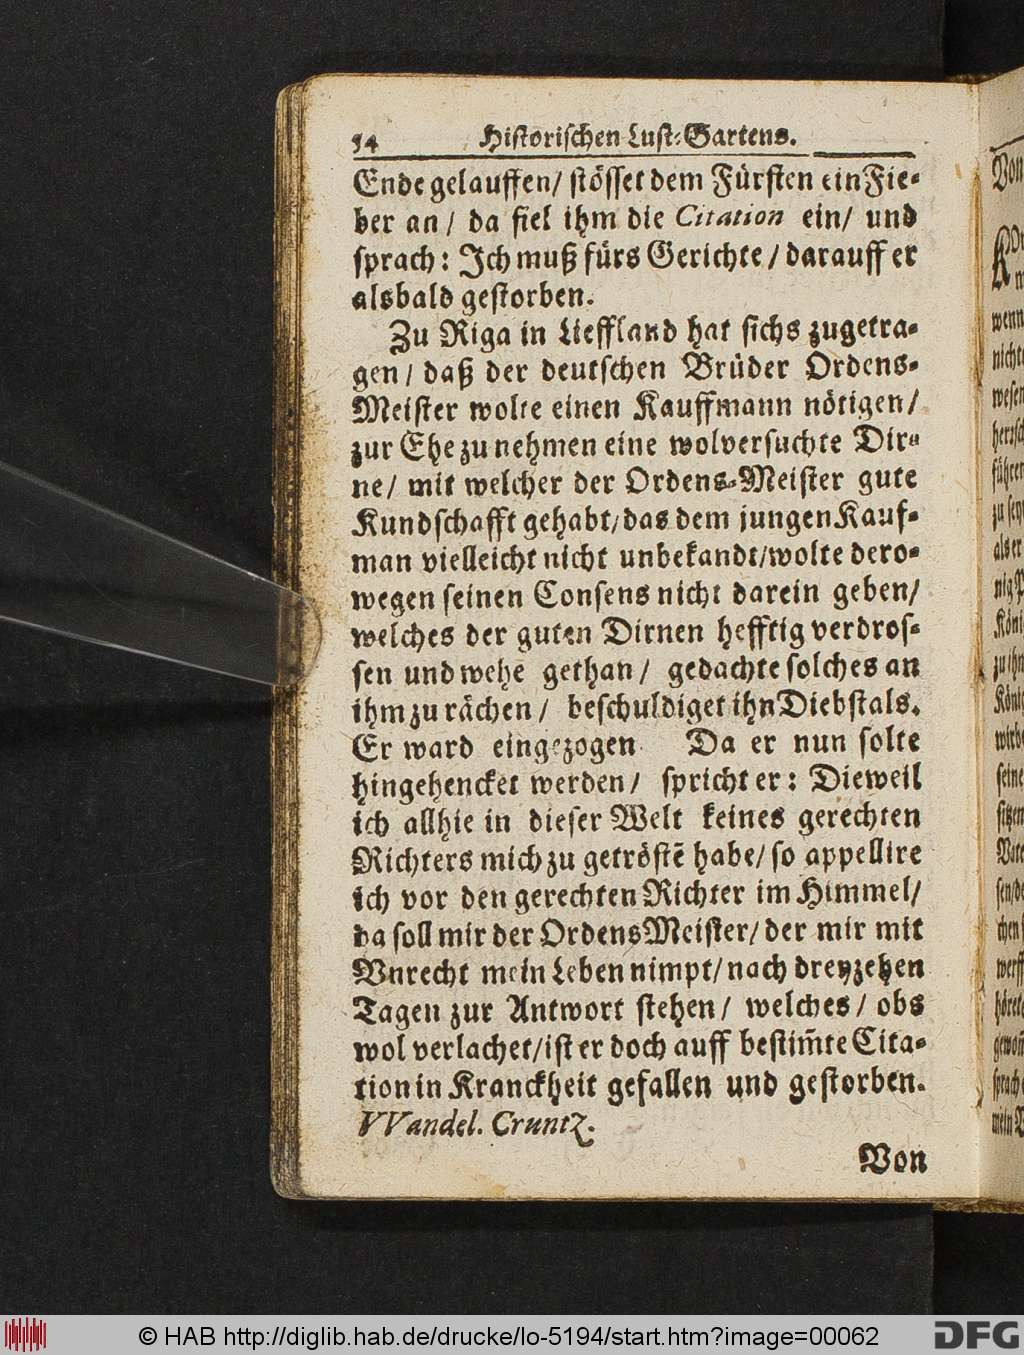 54 Historischen Lust-Gartens.
Ende gelauffen/ stösset dem Fürsten ein Fie-
ber an/ da fiel ihm die Citation ein/ und
sprach: Ich muß fürs Gerichte/ darauff er
alsbald gestorben.
Zu Riga in Lieffland hat sichs zugetra-
gen/ daß der deutschen Brüder Ordens-
Meister wolte einen Kauffmann nötigen/
zur Ehe zu nehmen eine wolversuchte Dir-
ne/ mit welcher der Ordens-Meister gute
Kundschafft gehabt/ das dem jungen Kauf-
man vielleicht nicht unbekandt/ wolte dero-
wegen seinen Consens nicht darein geben/
welches der guten Dirnen hefftig verdros-
sen und wehe gethan/ gedachte solches an
ihm zu rächen/ beschuldiget ihn Diebstals.
Er ward eingezogen Da er nun solte
hingehencket werden/ spricht er: Dieweil
ich allhie in dieser Welt keines gerechten
Richters mich zu getröstẽ habe/ so appellire
ich vor den gerechten Richter im Himmel/
da soll mir der Ordens Meister/ der mir mit
Vnrecht mein Leben nimpt/ nach dreyzehen
Tagen zur Antwort stehen/ welches/ obs
wol verlachet/ ist er doch auff bestim̃te Cita-
tion in Kranckheit gefallen und gestorben.
VVandel. Cruntz.
Von
© HAB http://diglib.hab.de/drucke/lo-5194/start.htm?image=00062
DFG